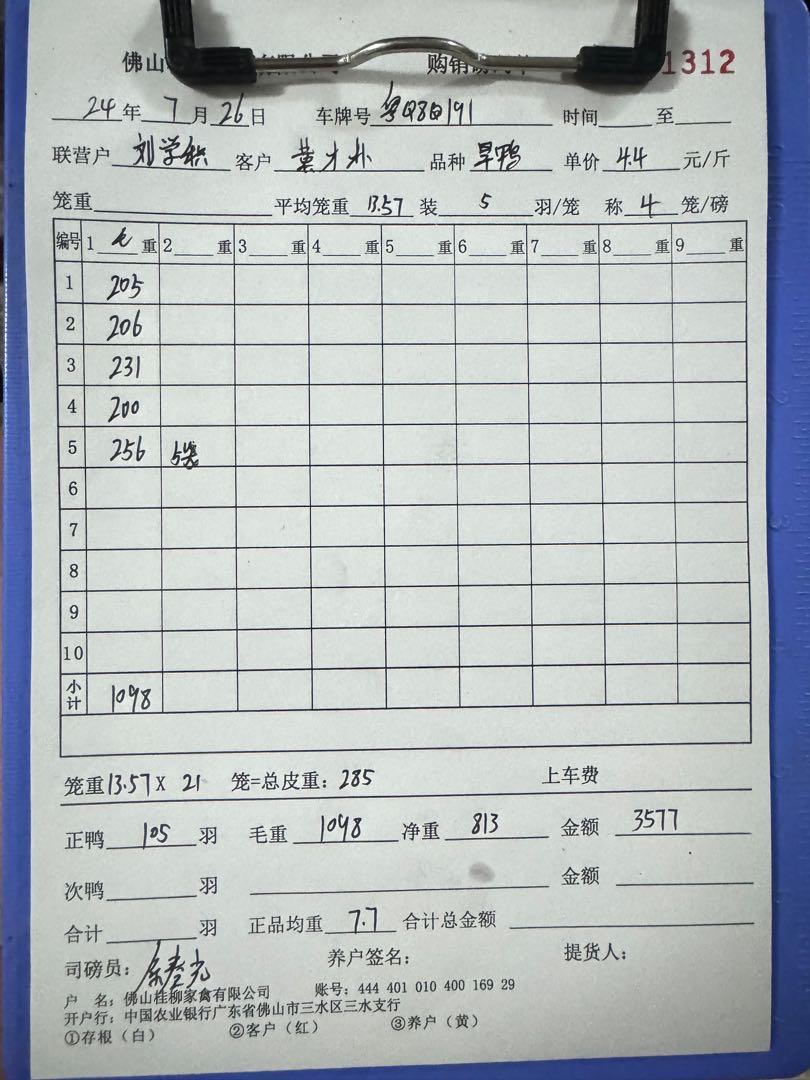 佛山 有限公司 购销 1312
24年7月26日 车牌号 粤Q8Q191 时间 至
联营户 刘学 客户 叶才 品种 旱鸭 单价 4.4 元/斤
笼重 平均笼重 13.57 装 5 羽/笼 称 4 笼/磅
编号 1 毛 重 2 重 3 重 4 重 5 重 6 重 7 重 8 重 9 重
1 205
2 206
3 231
4 200
5 256 5笼
6
7
8
9
10
小计 1098
笼重13.57X 21 笼=总皮重：285 上车费
正鸭 105 羽 毛重 1098 净重 813 金额 3577
次鸭 羽 金额
合计 羽 正品均重 7.7 合计总金额
司磅员： 养户签名： 提货人：
户 名：佛山桂柳家禽有限公司 账号：444 401 010 400 169 29
开户行：中国农业银行广东省佛山市三水区三水支行
①存根（白） ②客户（红） ③养户（黄）